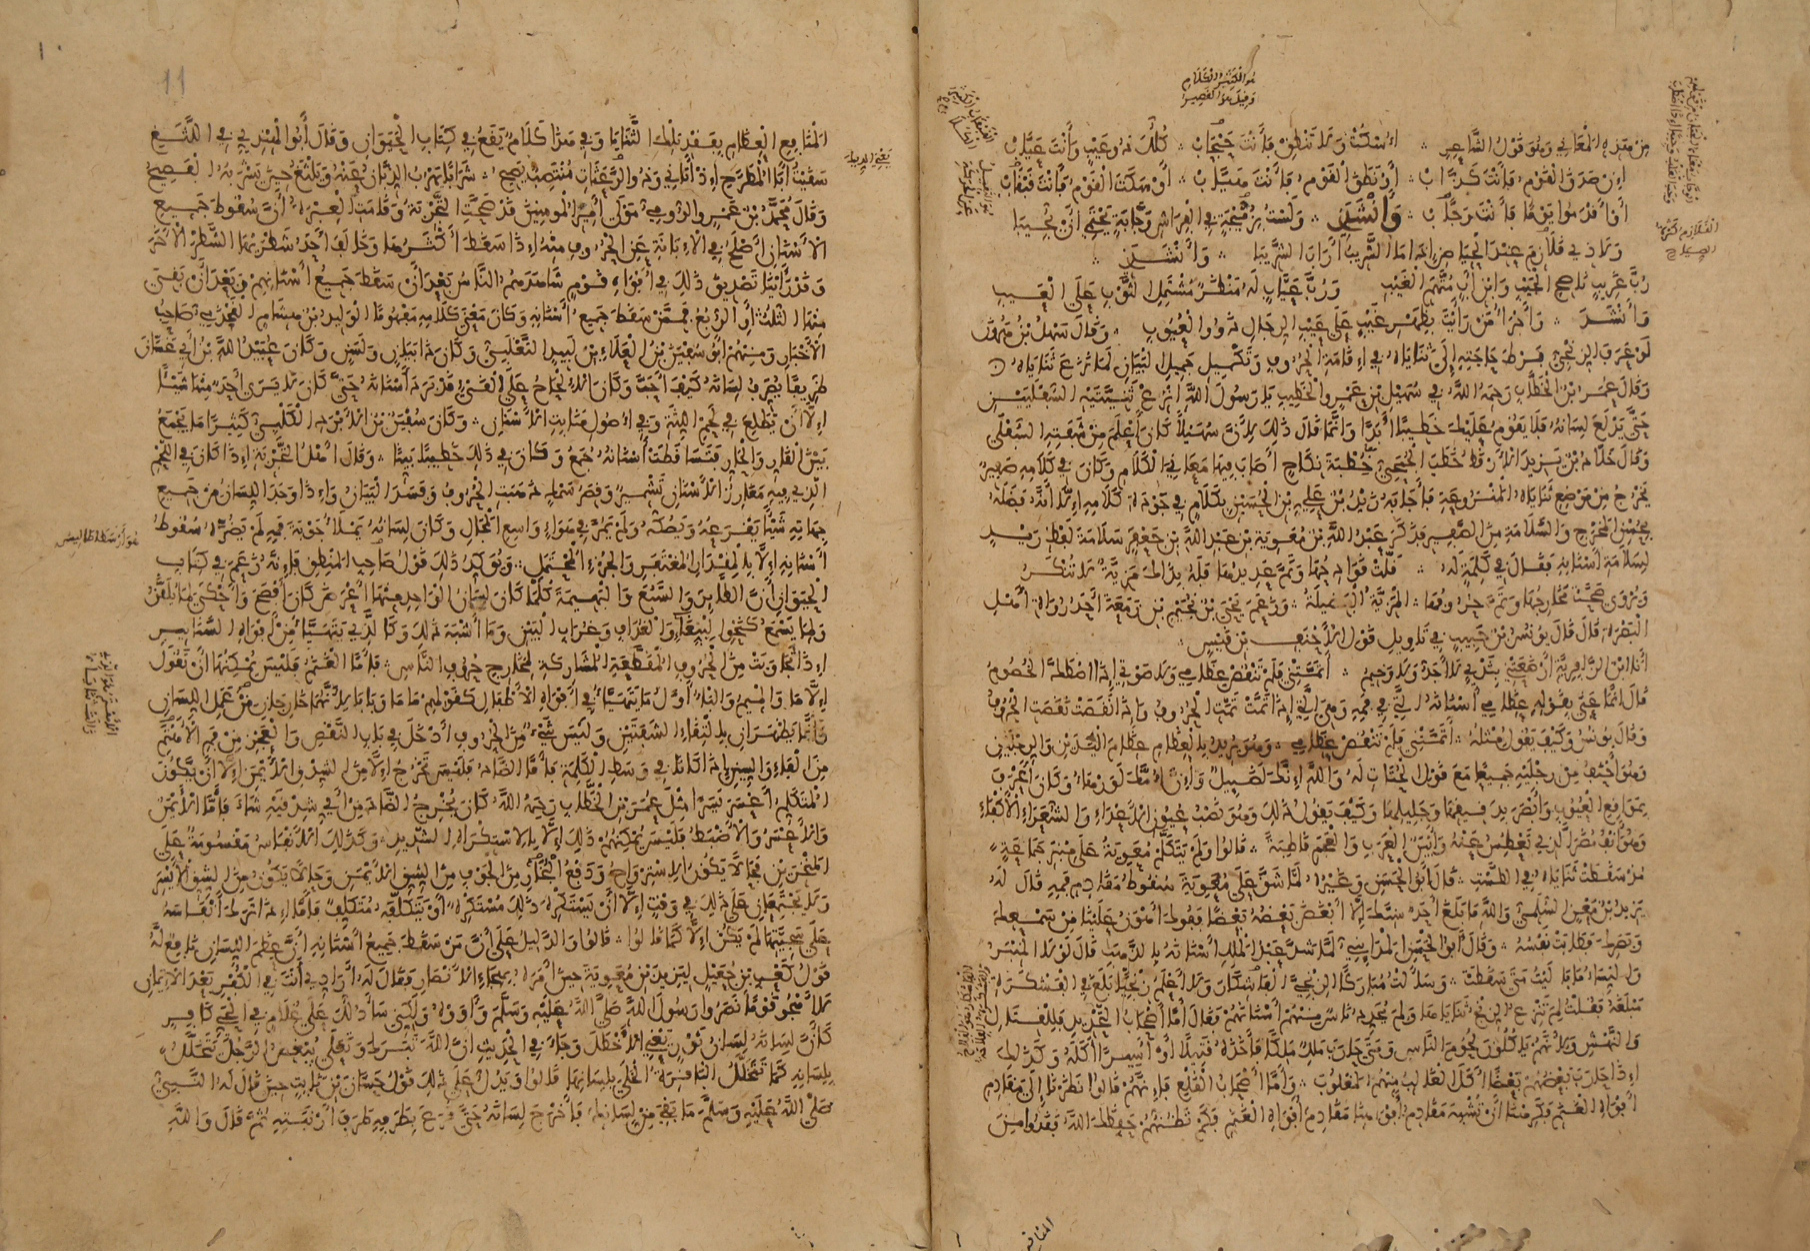 هو الكثير الكلام
وقيل هو القصير
من هذه المعاني وهو قول الشاعر اسكت ولا تنطق فأنت خيّاب كلّك ذو عيب وأنت عيّاب
إن صدق القوم فأنت كذّاب أو نطق القوم فأنت هيّاب أو سكت القوم فأنت قبقاب
أو أقدموا يوما فأنت وجّاب وأنشدني ولست بزميجة في الفراش وجّابة يحتمي أن يجيبا
ولا ذي قلازم عند الحياض إذا ما الشريب أراب الشريبا وأنشدني
ربّ غريب ناصح الجيب وابن أب متّهم الغيب وربّ عيّاب له منظر مشتمل الثوب على العيب
وأنشد وأجرأ من رأيت بظهر غيب على عيب الرجال ذوو العيوب وقال سهل بن هرون
لو عرف الزنجي فرط حاجته إلى ثناياه في إقامة الحروف وتكميل جميل البيان لما نزع ثناياه
وقال عمر بن الخطاب رحمه الله في سهيل بن عمرو الخطيب يا رسول الله انزع ثنيّتيه السفليين
حتى يدلع لسانه فلا يقوم عليك خطيبا أبدا وإنما قال ذلك لأن سهيلا كان أعلم من شفته السفلى
وقال خلاد بن يزيد الأرقط خطب الجمحي خطبة نكاح أصاب فيها معاني الكلام وكان في كلامه صفير
يخرج من موضع ثناياه المنزوعة فأجابه زيد بن علي بن الحسين بكلام في جودة كلامه إلا أنه فضله
بحسن المخرج والسلامة من الصفير فذكر عبد الله بن معوية بن عبد الله بن جعفر سلامة لفظ زيد
لسلامة أسنانه فقال في كلمة له قلّت قوادحها وتمّ عديدها فله بذاك مزيّة لا تنكر
ويروى صحّت مخارجها وتمّ حروفها المزيّة الفضيلة وزعم يحيى بن نجيم بن زمعة أحد رواة أهل
البصرة قال قال يونس بن حبيب في تأويل قول الأحنف بن قيس
أنا ابن الزافرية أرضعتني بثدي لا أجدّ ولا وخيم أتمّتني فلم تنقص عظامي ولا صوتي إذا اصطكّ الخصوم
قال إنما عنى بقوله عظامي أسنانه التي في فمه وهي التي إذا تمّت تمّت الحروف وإذا نقصت نقصت الحروف
وقال يونس وكيف يقول مثله أتمّتني فلم تنقص عظامي وهو يريد بالعظام عظام اليدين والرجلين
وهو أحنف من رجليه جميعا مع قول الحتات له والله إنك لضئيل وإن أمك لورهاء وكان أعرف
بمواقع العيوب وأبصر بدقيقها وجليلها وكيف يقول ذلك وهو نصب عيون الأعداء والشعراء والأكفاء
وهو أنف مضر الذي تعطس عنه وأبين العرب والعجم قاطبة قالوا ولم يتكلم معوية على منبر جماعة
مذ سقطت ثناياه في الطست قال أبو الحسن وغيره لما شقّ على معوية سقوط مقادم فيه قال له
يزيد بن معن السلمي والله ما بلغ أحد سنّك إلا أبغض بعضه بعضا ففوك أهون علينا من سمعك
وبصرك فطابت نفسه وقال أبو الحسن المدايني لما شدّ عبد الملك أسنانه بالذهب قال لولا المنابر
والنساء ما باليت متى سقطت وسألت مباركا الزنجي الفاشكار ولا أعلم زنجيّا بلغ في الفشكرة
مبلغه فقلت لم تنزع الزنج ثناياها ولم يحدد ناس منهم أسنانهم فقال أما أصحاب التحديد فللقتال
والنهش ولأنهم يأكلون لحوم الناس ومتى حارب ملك ملكا فأخذه قتيلا أو أسيرا أكله وكذلك
إذا حارب بعضهم بعضا أكل الغالب منهم المغلوب وأما أصحاب القلع فإنهم قالوا نظرنا إلى مقادم
أفواه الغنم فكرهنا أن تشبه مقادم أفواهنا مقادم أفواه الغنم فكم تظنهم حفظك الله فقدوا من
المنافع
11
المنافع العظام بفقد تلك الثنايا وفي هذا كلام يقع في كتاب الحيوان وقال أبو الهندي في اللثغ
سقيت أبا المطرّح إذ أتاني وذو الرعثات منتصب يصيح شرابا يهرب الذبّان عنه ويلثغ حين يشربه الفصيح
وقال محمد بن عمرو الرومي مولى أمير المومنين قد صحّت التجربة وقامت العبرة أن سقوط جميع
الأسنان أصلح في الإبانة عن الحروف منه إذا سقط أكثرها وخالف أحد شطريها الشطر الآخر
وقد رأينا تصديق ذلك في أفواه قوم شاهدهم الناس بعد أن سقط جميع أسنانهم وبعد أن بقي
منها الثلث أو الربع فممّن سقط جميع أسنانه وكان معنى كلامه مفهوما الوليد بن هشام القحذمي صاحب
الأخبار ومنهم أبو سفين بن العلاء بن لبيد التغلبي وكان ذا بيان ولسن وكان عبيد الله بن أبي غسّان
ظريفا يصرف لسانه كيف أحبّ وكان الإلحاح على القيء قد برد أسنانه حتى كان لا يرى أحد منها شيئا
إلا أن تطلع في لحم اللثة وفي أصول منابت الأسنان وكان سفين بن الأبرد الكلبي كثيرا ما يجمع
بين القارّ والحارّ فتساقطت أسنانه جمع وكان في ذلك خطيبا بيّنا وقال أهل التجربة إذا كان في اللحم
الذي فيه مغارز الأسنان تشمير وقصر سمك ذهبت الحروف وفسد البيان وإذا وجد اللسان من جميع
جهاته شيئا يقرعه ويصكّه ولم يمرّ في هواء واسع المجال وكان لسانه يملأ جوبة فمه لم يضرّه سقوط
أسنانه إلا بالمقدار المغتفر والجزء المحتمل ويؤكد ذلك قول صاحب المنطق فإنه زعم في كتاب
الحيوان أن الطاير والسبع والبهيمة كلما كان لسان الواحد منها أعرض كان أفصح وأحكى لما يلقّن
ولما يسمع كنحو الببغاء والغداف وغراب البين وما أشبه ذلك وكالذي يتهيّأ من أفواه السنانير
إذا تجاوبت من الحروف المقطّعة المشاركة لمخارج حروف الناس فأما الغنم فليس يمكنها أن تقول
إلا ما والميم والباء أول ما يتهيّأ في أفواه الأطفال كقولهم ماما وبابا لأنهما خارجان من عمل اللسان
وإنما يظهران بالتقاء الشفتين وليس شيء من الحروف أدخل في باب النقص والعجز من فم الأهتم
من الفاء والسين إذا كانا في وسط الكلمة فأما الضاد فليس تخرج إلا من الشدق الأيمن إلا أن يكون
المتكلم أعسر يسرا مثل عمر بن الخطاب رحمه الله كان يخرج الضاد من أي شدقيه شاء فأما الأيمن
والأعسر والأضبط فليس يمكنهم ذلك إلا بالاستكراه الشديد وكذلك الأنفاس مقسومة على
المنخرين فحالا يكون الاسترواح ودفع البخار من الجوف من الشق الأيمن وحالا يكون من الشق الأيسر
ولا يجتمعان على ذلك في وقت إلا أن يستكره ذلك مستكره أو يتكلفه متكلف فأما إذا ترك أنفاسه
على سجيّتها لم يكن إلا كما قالوا قالوا والدليل على أن من سقط جميع أسنانه أن عظم اللسان نافع له
قول كعب بن جعيل ليزيد بن معوية حين أمره بهجاء الأنصار وقال له أرادّي أنت في الكفر بعد الإيمان
لا أهجو قوما نصروا رسول الله صلى الله عليه وسلم وآووه ولكني سأدلّك على غلام في الحي كافر
كأن لسانه لسان ثور يعني الأخطل وجاء في الحديث إن الله تبارك وتعلى يبغض الرجل يتخلّل
بلسانه كما تتخلّل الباقرة الخلى بلسانها قالوا ويدل على ذلك قول حسان بن ثابت حين قال له النبي
صلى الله عليه وسلم ما بقي من لسانك فأخرج لسانه حتى قرع بطرفه طرف أرنبته ثم قال والله